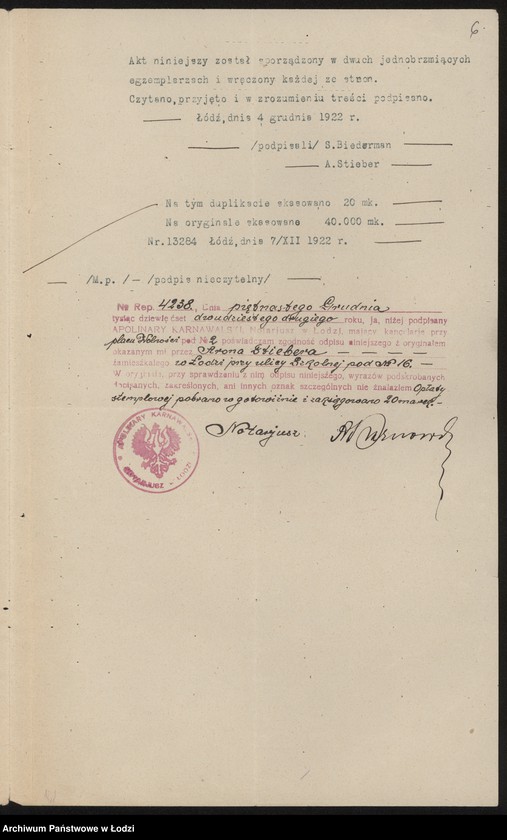 6
Akt niniejszy został sporządzony w dwuch jednobrzmiących
egzemplarzach i wręczony każdej ze stron.
Czytano, przyjęto i w zrozumieniu treści podpisano.
Łódź, dnia 4 grudnia 1922 r.
/podpisali/ S.Biederman
A.Stieber
Na tym duplikacie skasowano 20 mk.
Na oryginale skasowano 40.000 mk.
Nr.13284 Łódź, dnia 7/XII 1922 r.
/M.p./ - /podpis nieczytelny/
№ Rep. 4238, Dnia piętnastego Grudnia
tysiąc dziewięćset dwudziestego drugiego roku, ja, niżej podpisany
APOLINARY KARNAWALSKI, Notariusz w Łodzi, mający kancelarię przy
placu Wolności pod № 2 poświadczam zgodność odpisu niniejszego z oryginałem
okazanym mi przez Arona Stiebera
zamieszkałego w Łodzi przy ulicy Szkolnej pod № 16.
W oryginale, przy sprawdzaniu z nim odpisu niniejszego, wyrazów podskrobanych
dopisanych, zakreślonych, ani innych oznak szczególnych nie znalazłem Opłaty
stemplowej pobrano w gotowiźnie i zaksięgowano 20 marek.-
Notarjusz.
APOLINARY KARNAWALSKI
NOTARJUSZ w ŁODZI
Archiwum Państwowe w Łodzi